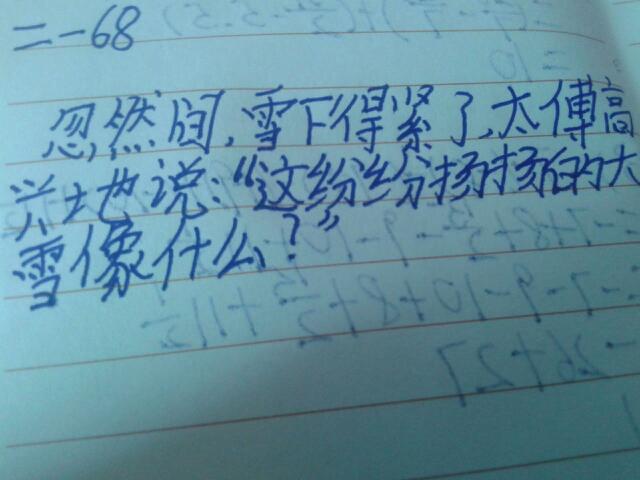 =-68
忽然间,雪下得紧了,太傅高
兴地说:“这纷纷扬扬的大
雪像什么?”